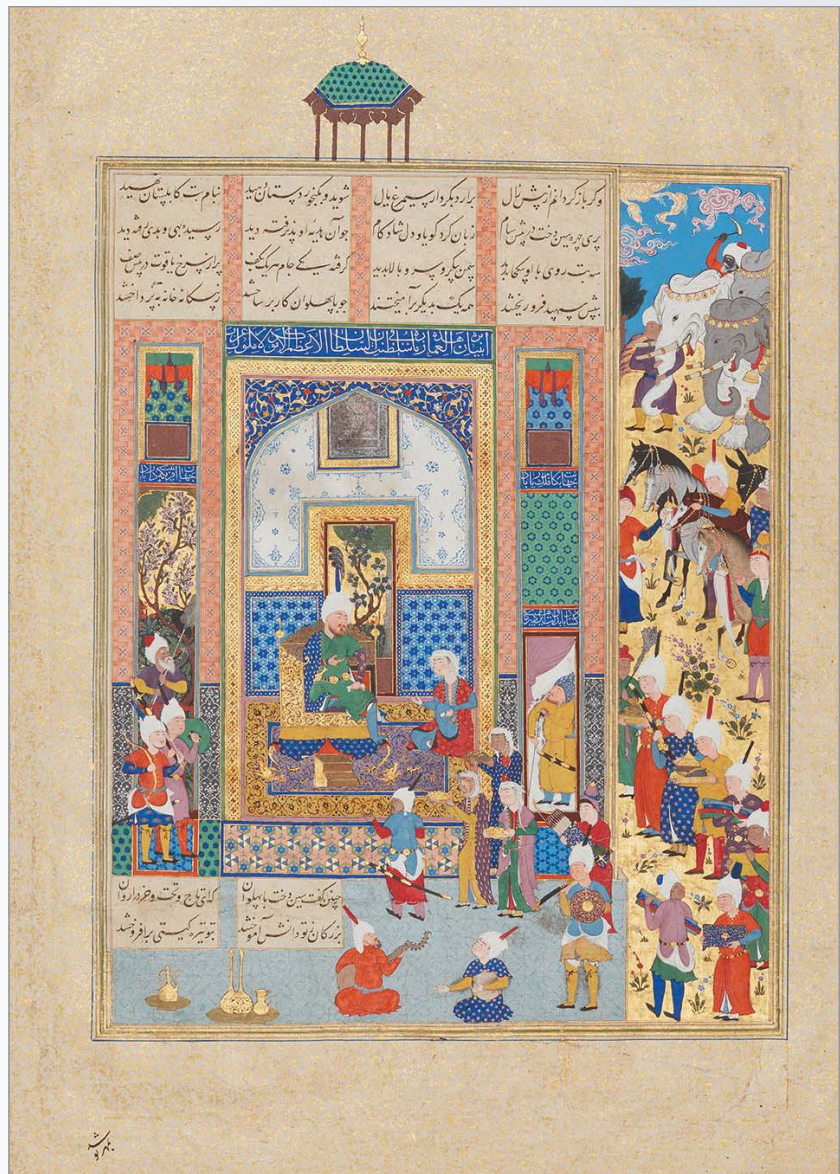 و کر بازکردانم از پیش زال برارد بکردار سیمرغ یال شوید و بکنجور دستان دهید بنام بت کابلستان نهید
پری چهره سین دخت در پیش سام زبان کرد کویا و دل شادکام جو آن هدیه او پذرفته دید رسید بهی و بدی رفته دید
سه بت روی با او بیکجا بدند سمن پیکر و سرو بالا بدند کرفته یکی جام هر یک بکف پر از سرخ یاقوت در پیش صف
بپیش سپهبد فرو ریختند همه یک بدیکر برآمیختند جو با پهلوان کار برساختند ز بیکانه خانه بپرداختند
السلطان الاعظم
چنین کفت سین دخت با پهلوان که ای تاج و تخت و خرد را روان
بزرکان ز تو دانش آموختند بتو تیره کیتی برافروختند